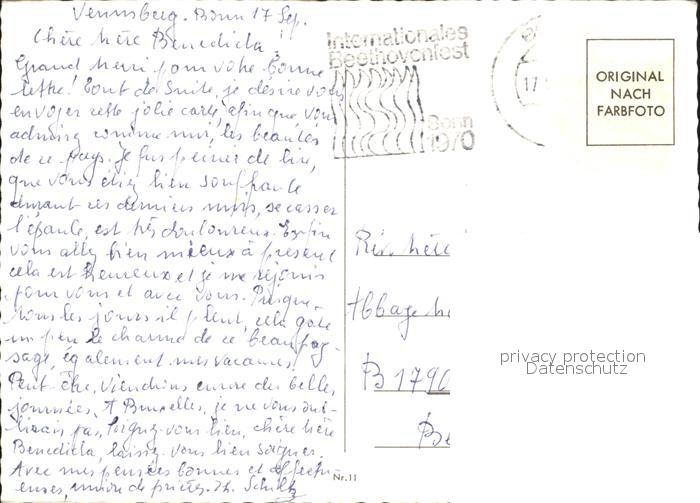 Venusberg. Bonn 17 Sep.
Chère Mère Benedicta!
Grand merci pour votre bonne
lettre! Tout de suite, je désire vous
envoyer cette jolie carte, afin que vous
admirez comme moi, les beautés
de ce pays. Je fus peinée de lire,
que vous étiez bien souffrante
durant ces derniers mois, se casser
l'épaule, est très douloureux. Enfin
vous allez bien mieux à présent
cela est heureux et je me réjouis
pour vous et avec vous. Presque
tous les jours il pleut, cela gâte
un peu le charme de ce beau pay-
sage, également mes vacances!
Peut-être, viendrons encore des belles
journées. A Bruxelles, je ne vous ou-
blierais pas, Soignez-vous bien, chère Mère
Benedicta, laissez-vous bien soigner.
Avec mes pensées bonnes et affectu-
euses, union de prières. Schultz
Internationales
Beethovenfest
Bonn
1970
17
ORIGINAL
NACH
FARBFOTO
Rév. Mère
Abbaye
B 1790
privacy protection
Datenschutz
Nr.11